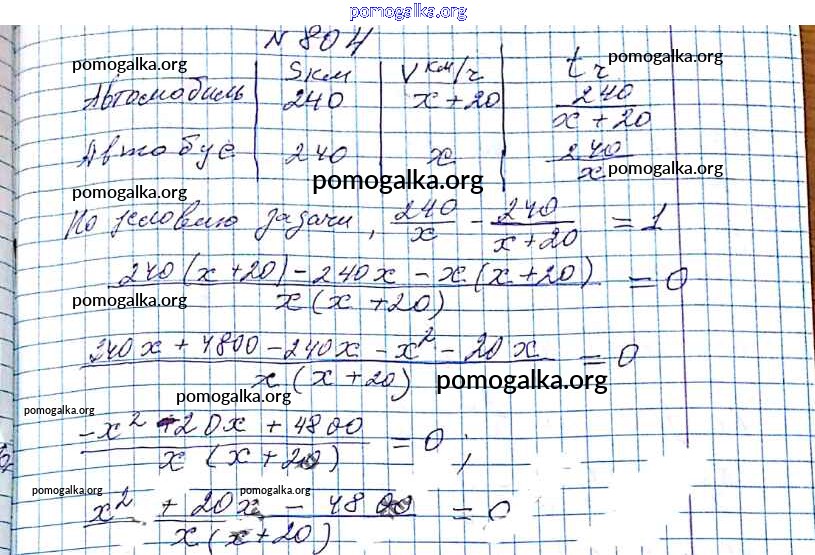 pomogalka.org
N 804
pomogalka.org pomogalka.org
S км | V км/ч | t ч
Автомобиль | 240 | x + 20 | 240/(x + 20)
Автобус | 240 | x | 240/x
pomogalka.org pomogalka.org pomogalka.org
По условию задачи, 240/x - 240/(x + 20) = 1
(240(x + 20) - 240x - x(x + 20))/(x(x + 20)) = 0
pomogalka.org
(240x + 4800 - 240x - x² - 20x)/(x(x + 20)) = 0
pomogalka.org pomogalka.org pomogalka.org
(-x² - 20x + 4800)/(x(x + 20)) = 0;
pomogalka.org pomogalka.org pomogalka.org
(x² + 20x - 4800)/(x(x + 20)) = 0